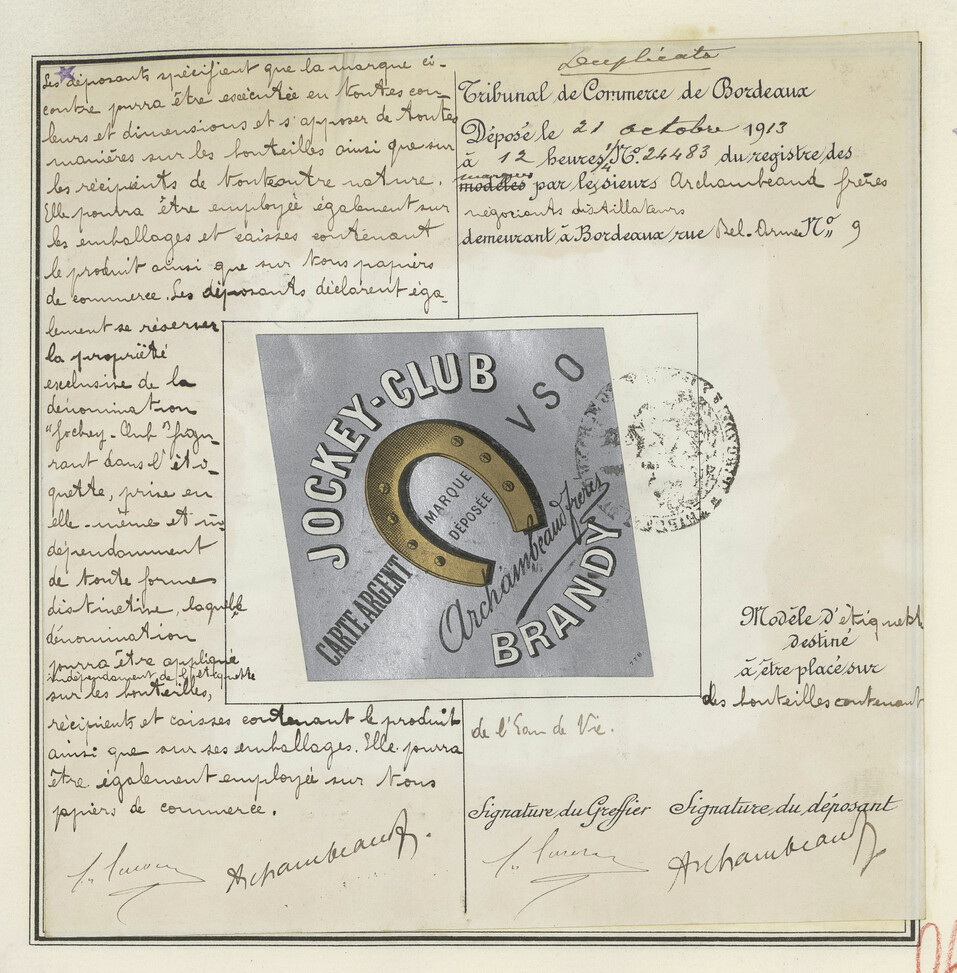 Les déposants spécifient que la marque ci-
contre pourra être exécutée en toutes cou-
leurs et dimensions et s'apposer de toutes
manières sur les bouteilles ainsi que sur
les récipients de toute autre nature.
Elle pourra être employée également sur
les emballages et caisses contenant
le produit ainsi que sur tous papiers
de commerce. Les déposants déclarent éga-
lement se réserver
la propriété
exclusive de la
dénomination
"Jockey-Club" figu
rant dans l'éti-
quette, prise en
elle-même et in
dépendamment
de toute forme
distinctive, laquelle
dénomination
pourra être appliquée
indépendament de l'étiquette
sur les bouteilles,
récipients et caisses contenant le produit
ainsi que sur ses emballages. Elle pourra
être également employée sur tous
papiers de commerce.
Archambeaud
Duplicata
Tribunal de Commerce de Bordeaux
Déposé le 21 octobre 1913
à 12 heures 1/4 No. 24483 du registre des
marques
modèles par les sieurs Archambeaud frères
négociants distillateurs
demeurant à Bordeaux rue Bel-Orme No. 9
JOCKEY-CLUB
VSO
MARQUE
DÉPOSÉE
CARTE ARGENT
Archambeaud frères
BRANDY
Modèle d'étiquette
destiné
à être placé sur
des bouteilles contenant
de l'Eau de Vie.
Signature du Greffier Signature du déposant
Archambeaud